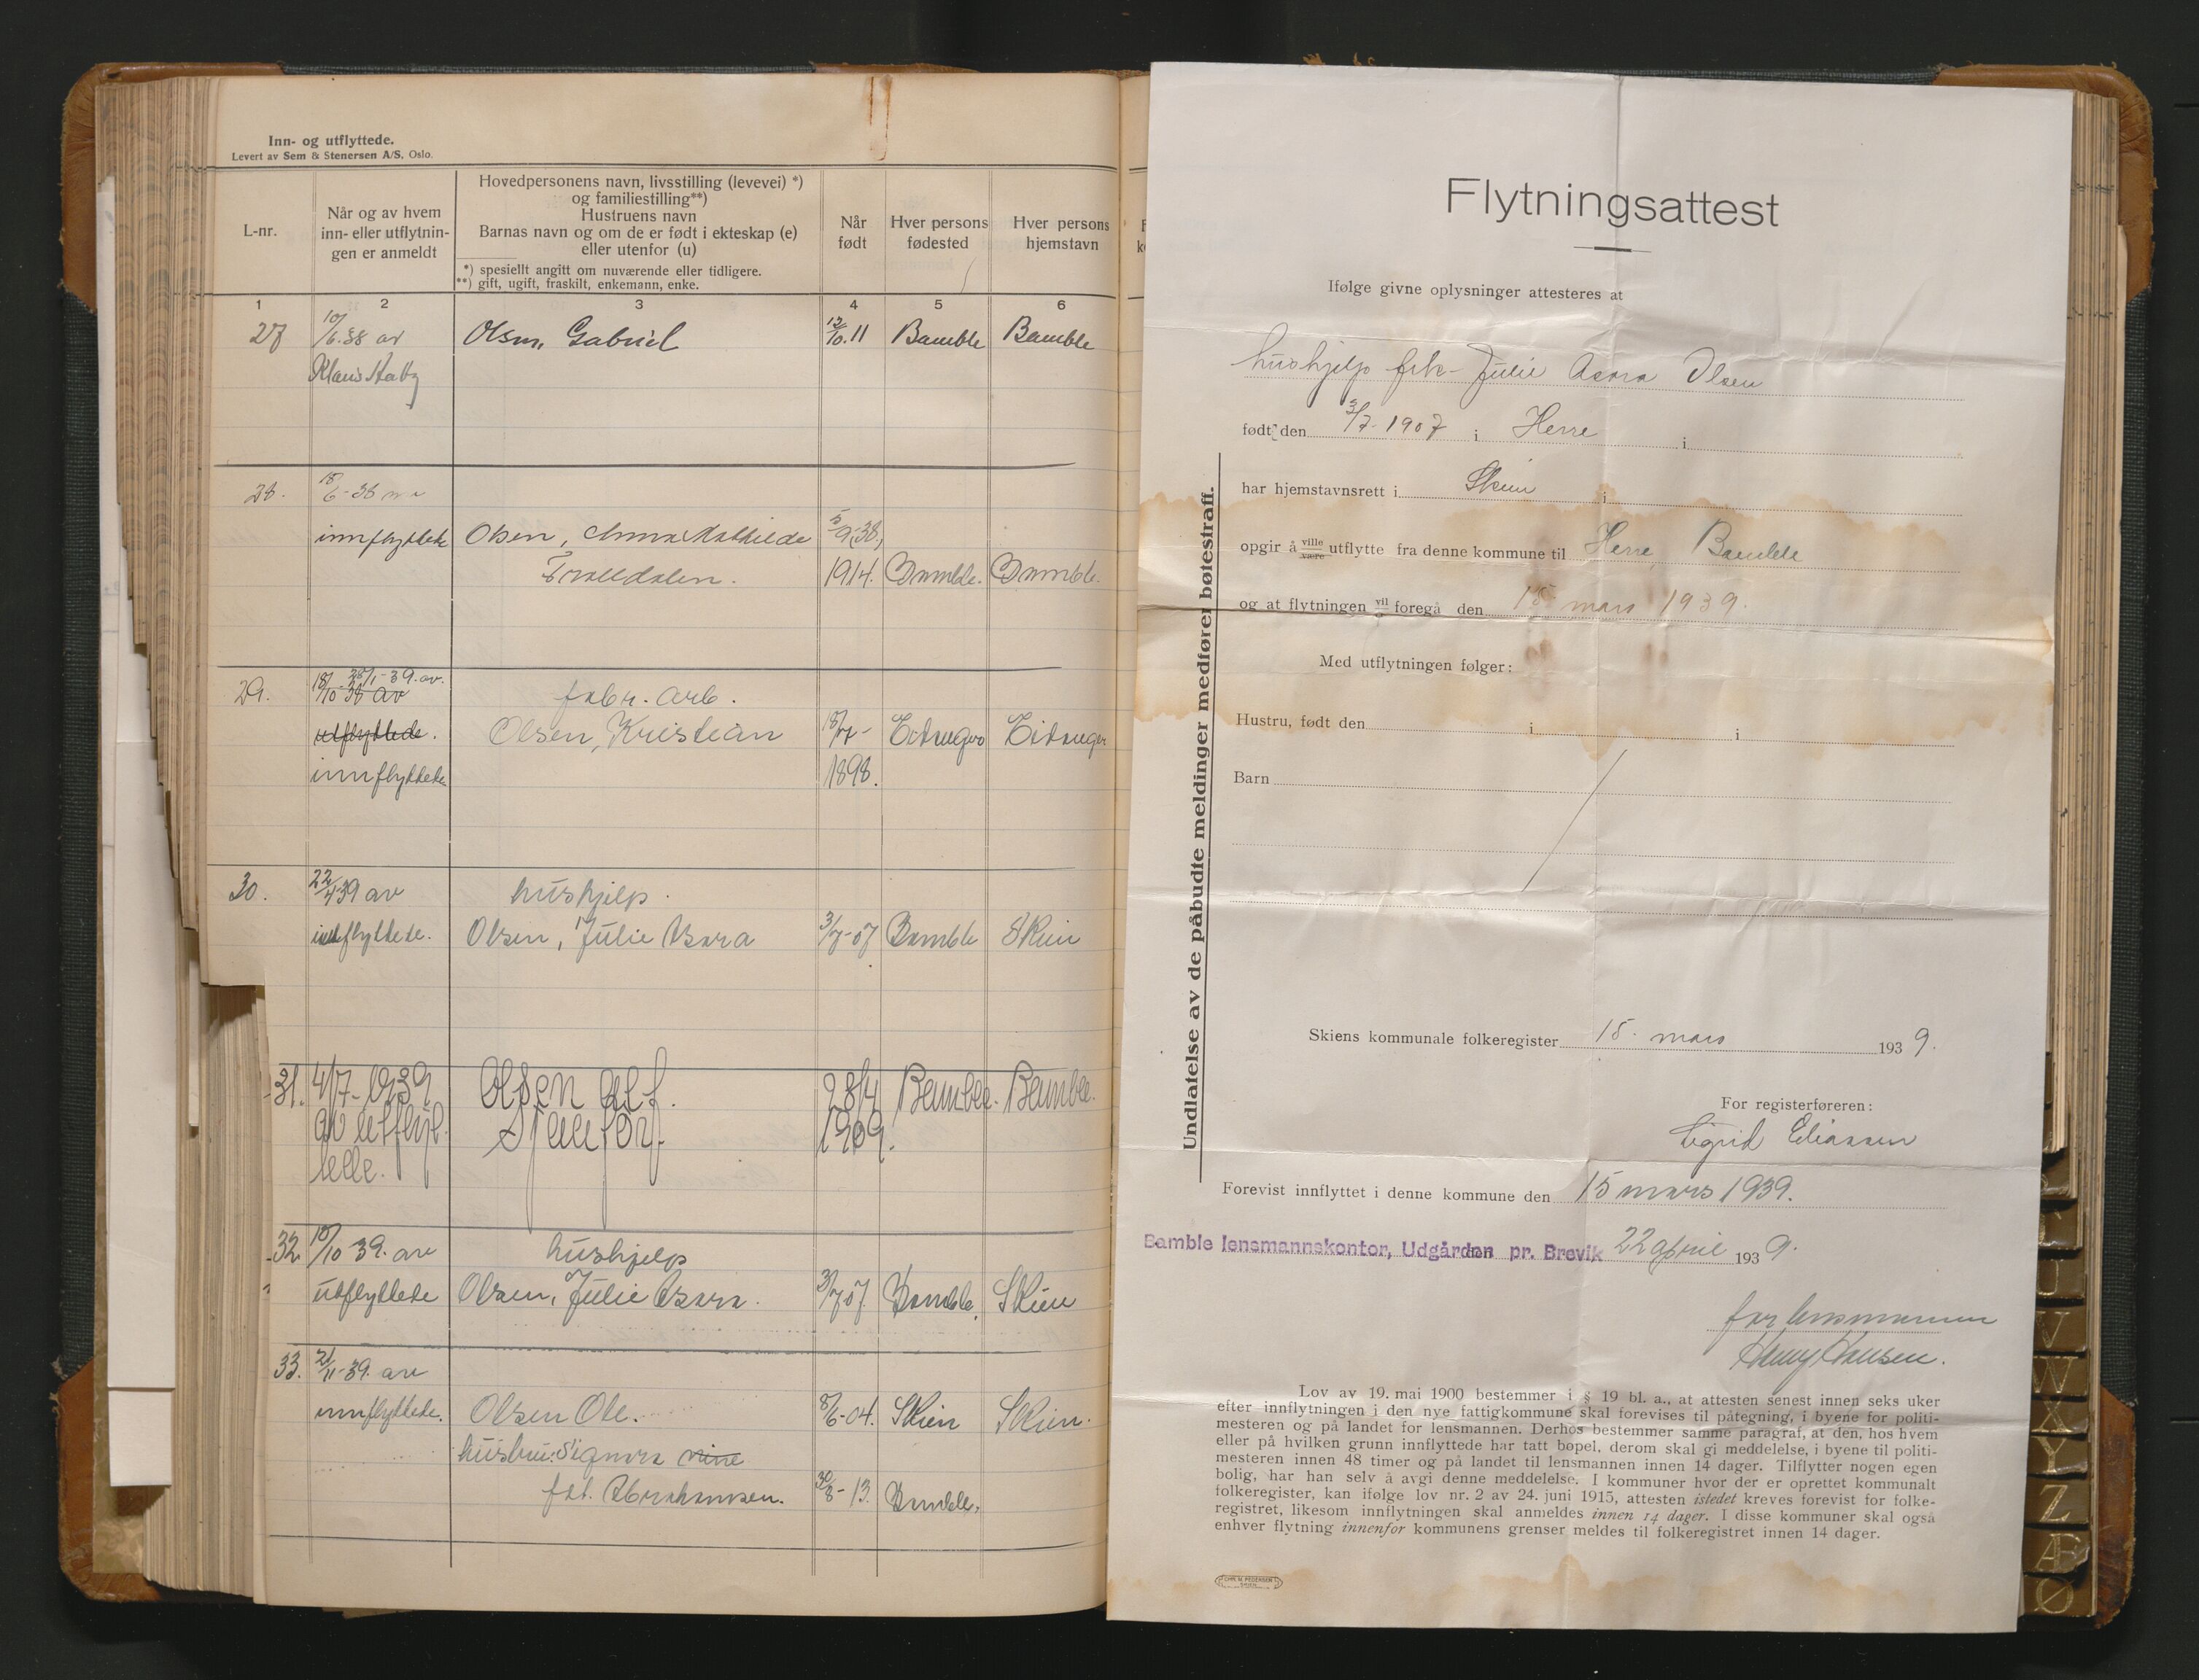 Inn- og utflyttede.
Levert av Sem & Stenersen A/S, Oslo.
L-nr.
Når og av hvem
inn- eller utflytnin-
gen er anmeldt
Hovedpersonens navn, livsstilling (levevei) *)
og familiestilling**)
Hustruens navn
Barnas navn og om de er født i ekteskap (e)
eller utenfor (u)
*) spesiellt angitt om nuværende eller tidligere.
**) gift, ugift, fraskilt, enkemann, enke.
Når
født
Hver persons
fødested
Hver persons
hjemstavn
1 2 3 4 5 6
27 10/6.38 av Olsen, Gabriel 12/10.11 Bamble Bamble
28. 18/6-38 
innflyttede Olsen, Anna Mathilde 5/9(38,
Trolldalen. 1914. Bamble. Bamble.
29. 18/10 38 av 28/1-39. av. fabr. arb.
utflyttede. Olsen, Kristian 18/7- Eidanger Eidanger
innflyttede 1898.
30. 22/4 39 av hushjelp.
innflyttede. Olsen, Julie Asora 3/7-07 Bamble Skien
31. 4/7-1939 Olsen Alf. 28/4 Bamble. Bamble.
av utflyt- 1909.
32. 10/10 39. av hushjelp
utflyttede Olsen, Julie Asora. 3/7 07. Bamble. Skien
33. 21/11-39. av
innflyttede. Olsen Ole. 8/6-04. Skien Skien.
hustru: Signora
føt. Abrahamsen. 30/8-13. Bamble.
Flytningsattest
Ifølge givne oplysninger attesteres at
hushjelp frk. Julie Asora Olsen
født den 3/7-1907 i Herre i
har hjemstavnsrett i Skien i
opgir å ville være utflytte fra denne kommune til Herre, Bamble
og at flytningen vil foregå den 15. mars 1939.
Med utflytningen følger:
Hustru, født den i i
Barn
Skiens kommunale folkeregister 15. mars 1939.
For registerføreren:
Sigrid Eliassen
Forevist innflyttet i denne kommune den 15 mars 1939.
Bamble lensmannskontor, Udgården pr. Brevik 22 april 1939.
for lensmannen
Henry Hansen.
Undlatelse av de påbudte meldinger medfører bøtestraff.
Lov av 19. mai 1900 bestemmer i § 19 bl. a., at attesten senest innen seks uker
efter innflytningen i den nye fattigkommune skal forevises til påtegning, i byene for politi-
mesteren og på landet for lensmannen. Derhos bestemmer samme paragraf, at den, hos hvem
eller på hvilken grunn innflyttede har tatt bopel, derom skal gi meddelelse, i byene til politi-
mesteren innen 48 timer og på landet til lensmannen innen 14 dager. Tilflytter nogen egen
bolig, har han selv å avgi denne meddelelse. I kommuner hvor der er oprettet kommunalt
folkeregister, kan ifølge lov nr. 2 av 24. juni 1915, attesten istedet kreves forevist for folke-
registret, likesom innflytningen skal anmeldes innen 14 dager. I disse kommuner skal også
enhver flytning innenfor kommunens grenser meldes til folkeregistret innen 14 dager.
U
V
W
X
Y
Z
Æ
Ø